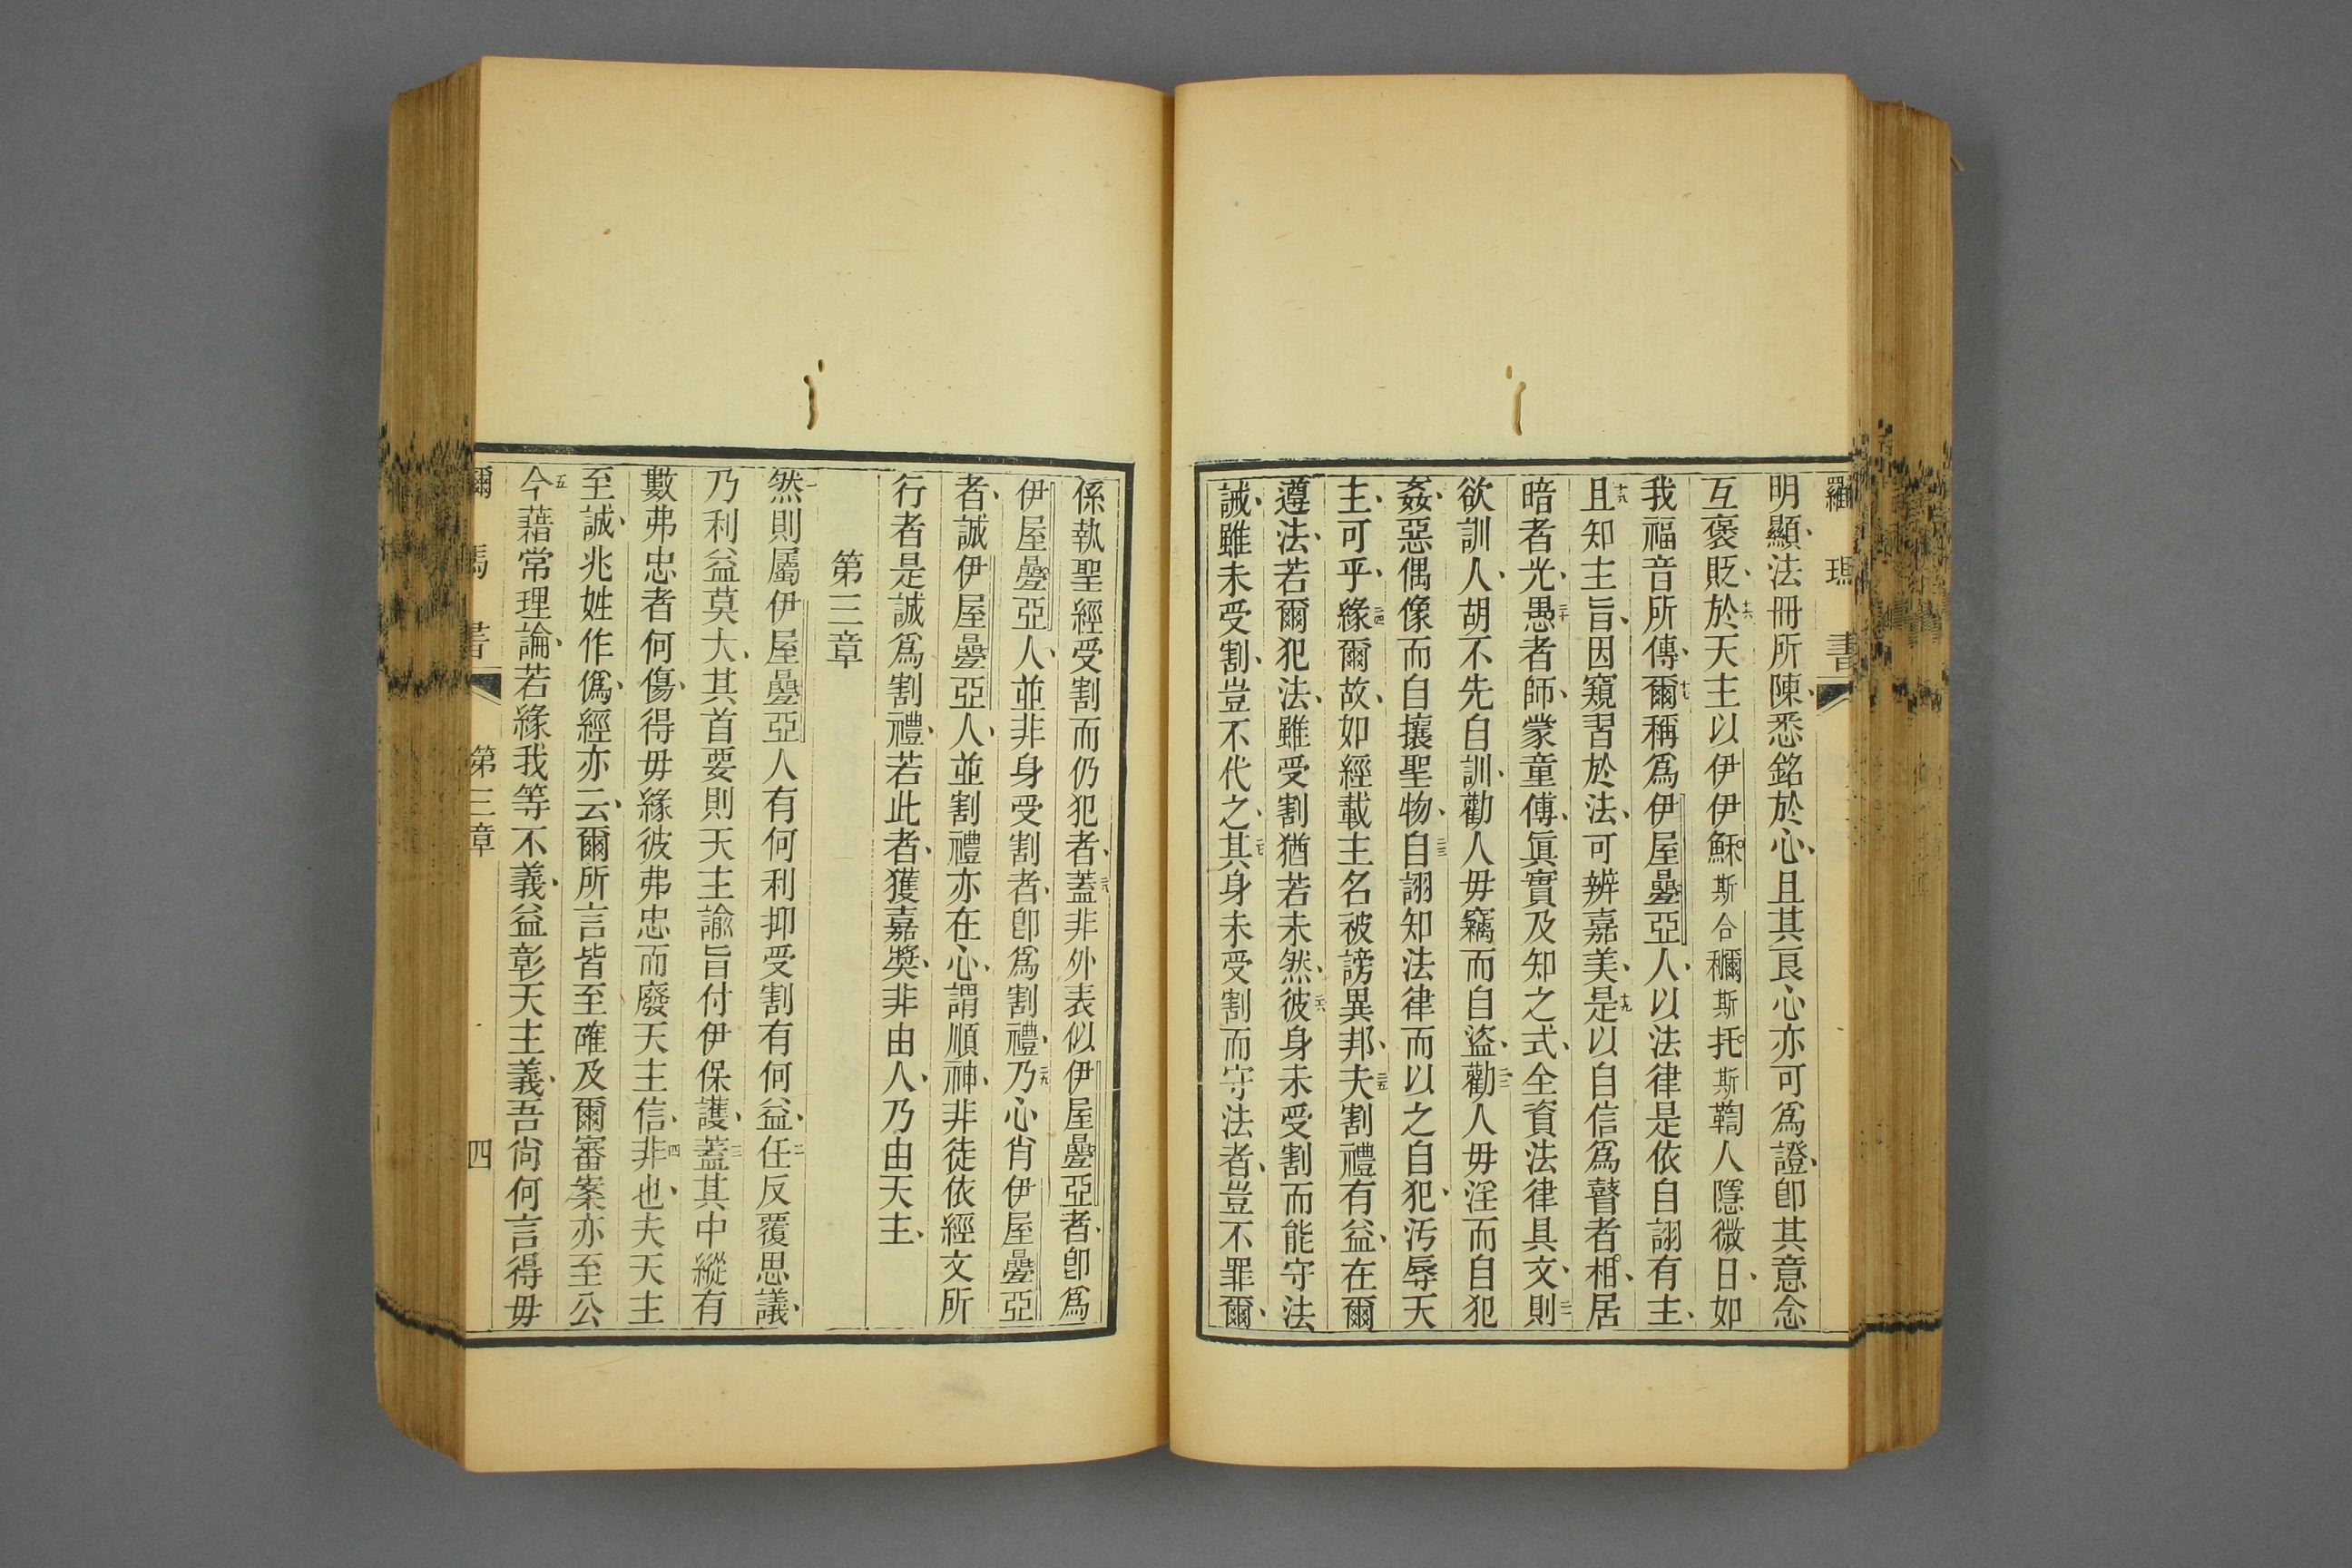 羅 瑪 書
明顯、法冊所陳、悉銘於心、且其良心亦可爲證、卽其意念
互褒貶、十六於天主以伊伊穌斯合穪斯托斯鞫人隱微日、如
我福音所傳、十七爾稱爲伊屋疊亞人、以法律是依自詡有主、
十八且知主旨、因窺習於法、可辨嘉美、十九是以自信爲瞽者相、居
暗者光、二十愚者師、蒙童傅、眞實及知之式、全資法律具文、二一則
欲訓人、胡不先自訓、勸人毋竊而自盜、二二勸人毋淫而自犯
姦、惡偶像而自攘聖物、二三自詡知法律而以之自犯、汚辱天
主、可乎、二四緣爾故、如經載主名被謗異邦、二五夫割禮有益、在爾
遵法、若爾犯法、雖受割猶若未然、二六彼身未受割而能守法
誡、雖未受割、豈不代之、二七其身未受割而守法者、豈不罪爾、
係執聖經受割而仍犯者、二八蓋非外表似伊屋疊亞者、卽爲
伊屋疊亞人、並非身受割者、卽爲割禮、二九乃心肖伊屋疊亞
者、誠伊屋疊亞人、並割禮亦在心、謂順神、非徒依經文所
行者是誠爲割禮、若此者、獲嘉奬、非由人、乃由天主、
第三章
一然則屬伊屋疊亞人有何利抑受割有何益、二任反覆思議、
乃利益莫大、其首要則天主諭旨付伊保護、三蓋其中縱有
數弗忠者何傷、得毋緣彼弗忠而廢天主信、四非也、夫天主
至誠、兆姓作僞、經亦云、爾所言皆至確及爾審案亦至公
五今藉常理論、若緣我等不義、益彰天主義、吾尙何言得毋
第三章 四